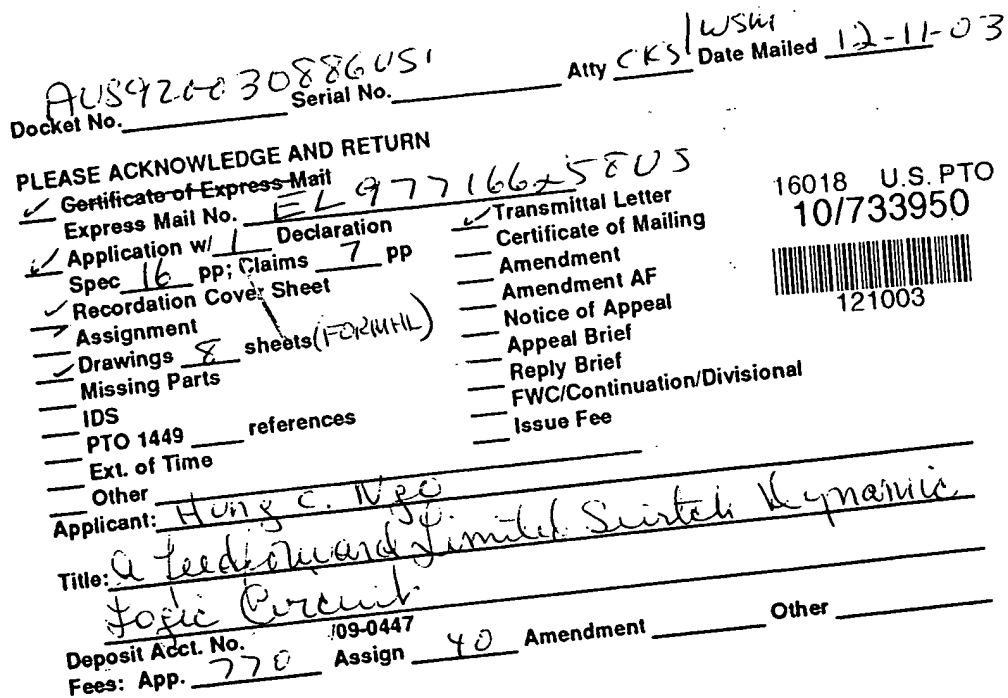 AUS920030886US1 Atty CKS/WSM Date Mailed 12-11-03
Docket No. Serial No.
PLEASE ACKNOWLEDGE AND RETURN
✓ Certificate of Express Mail
Express Mail No. EL977166258US
✓ Application w/ 1 Declaration
Spec 16 pp; Claims 7 pp
✓ Recordation Cover Sheet
Assignment
✓ Drawings 8 sheets (FORMAL)
Missing Parts
IDS
PTO 1449 references
Ext. of Time
Other
✓ Transmittal Letter
Certificate of Mailing
Amendment
Amendment AF
Notice of Appeal
Appeal Brief
Reply Brief
FWC/Continuation/Divisional
Issue Fee
16018 U.S. PTO
10/733950
121003
Applicant: Hung C. Ngo
Title: A Feedforward Limited Switch Dynamic
Logic Circuit
Deposit Acct. No. /09-0447
Fees: App. 770 Assign 40 Amendment Other